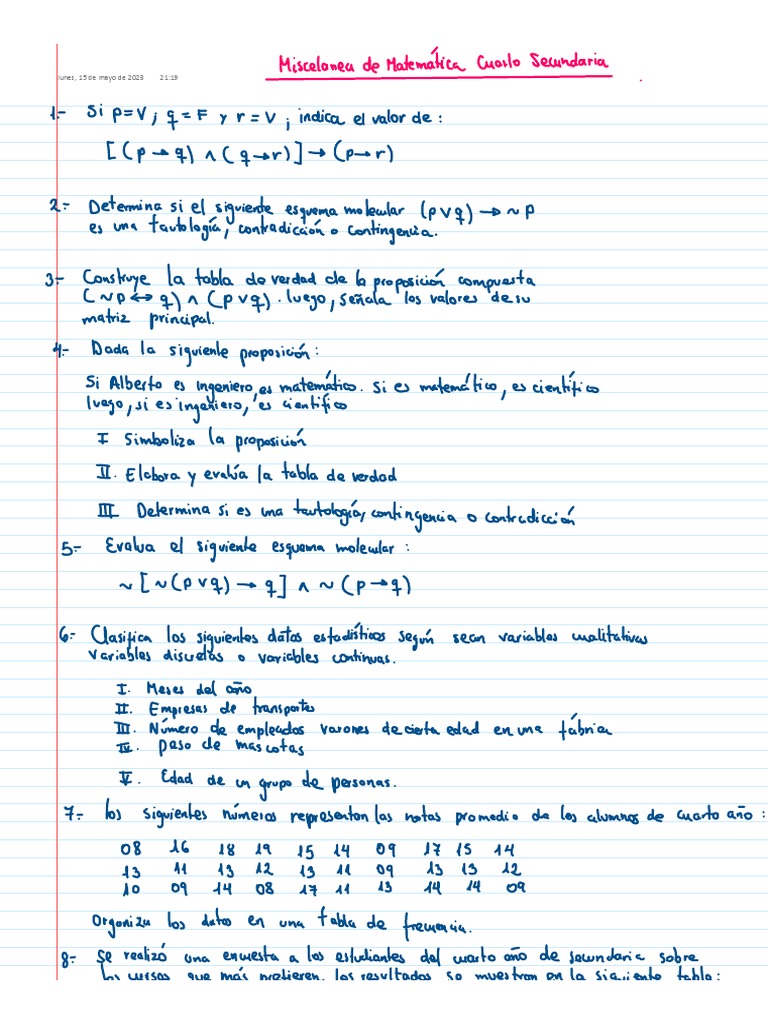 Miscelanea de Matemática Cuarto Secundaria
lunes, 15 de mayo de 2023 21:19
1.- Si p=V, q=F y r=V, indica el valor de:
[(p→q) ∧ (q→r)] → (p→r)
2.- Determina si el siguiente esquema molecular (p∨q) → ~p
es una tautología, contradicción o contingencia.
3.- Construye la tabla de verdad de la proposición compuesta
(~p ↔ q) ∧ (p∨q). luego, señala los valores de su
matriz principal.
4.- Dada la siguiente proposición:
Si Alberto es ingeniero, es matemático. Si es matemático, es científico
luego, si es ingeniero, es científico
I Simboliza la proposición
II. Elabora y evalúa la tabla de verdad
III Determina si es una tautología, contingencia o contradicción
5.- Evalua el siguiente esquema molecular:
~[~(p∨q) → q] ∧ ~(p→q)
6.- Clasifica los siguientes datos estadísticos según sean variables cualitativas
variables discretas o variables continuas.
I. Meses del año
II. Empresas de transportes
III. Número de empleados varones de cierta edad en una fábrica
IV. peso de mascotas
V. Edad de un grupo de personas.
7.- los siguientes números representan las notas promedio de los alumnos de cuarto año:
08 16 18 19 15 14 09 17 15 14
13 11 13 12 13 11 09 13 13 12
10 09 14 08 17 11 13 14 14 09
Organiza los datos en una tabla de frecuencia.
8.- Se realizó una encuesta a los estudiantes del cuarto año de secundaria sobre
los cursos que más prefieren. los resultados se muestran en la siguiente tabla: